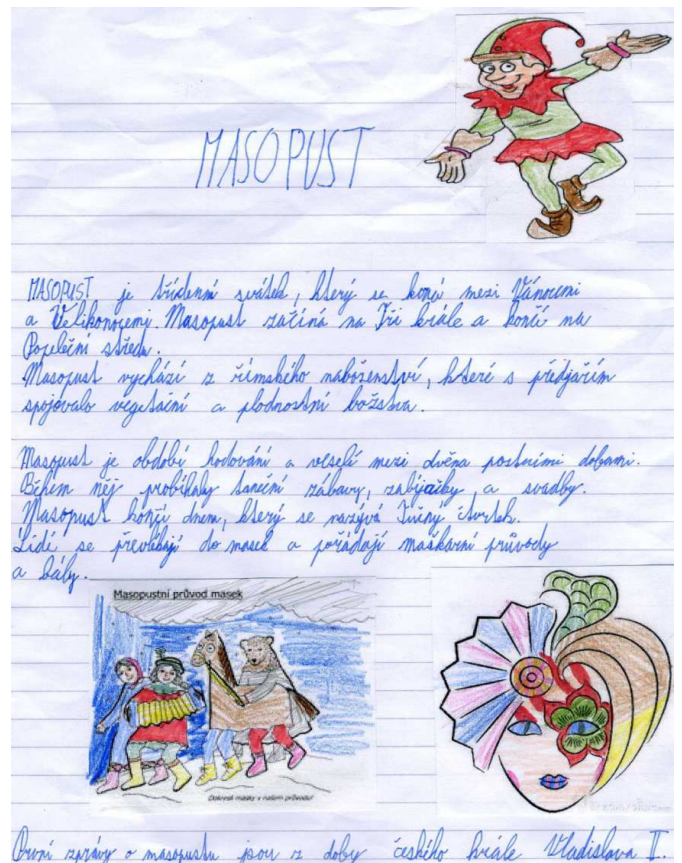 MASOPUST
MASOPUST je třídenní svátek, který se koná mezi Vánocemi
a Velikonocemi. Masopust začíná na Tři krále a končí na
Popeleční středu.
Masopust vychází z římského naboženství, které s předjařím
spojovalo vegetační a plodnostní božstva.
Masopust je období hodování a veselí mezi dvěma postními dobami.
Během něj probíhaly taneční zábavy, zabijačky a svadby.
Masopust končí dnem, který se nazývá Tučný čtvrtek.
Lidé se převlékají do masek a pořádají maškarní průvody
a bály.
Masopustní průvod masek
Dokresli masky v našem průvodu!
První zprávy o masopustu jsou z doby českého krále Vladislava II.